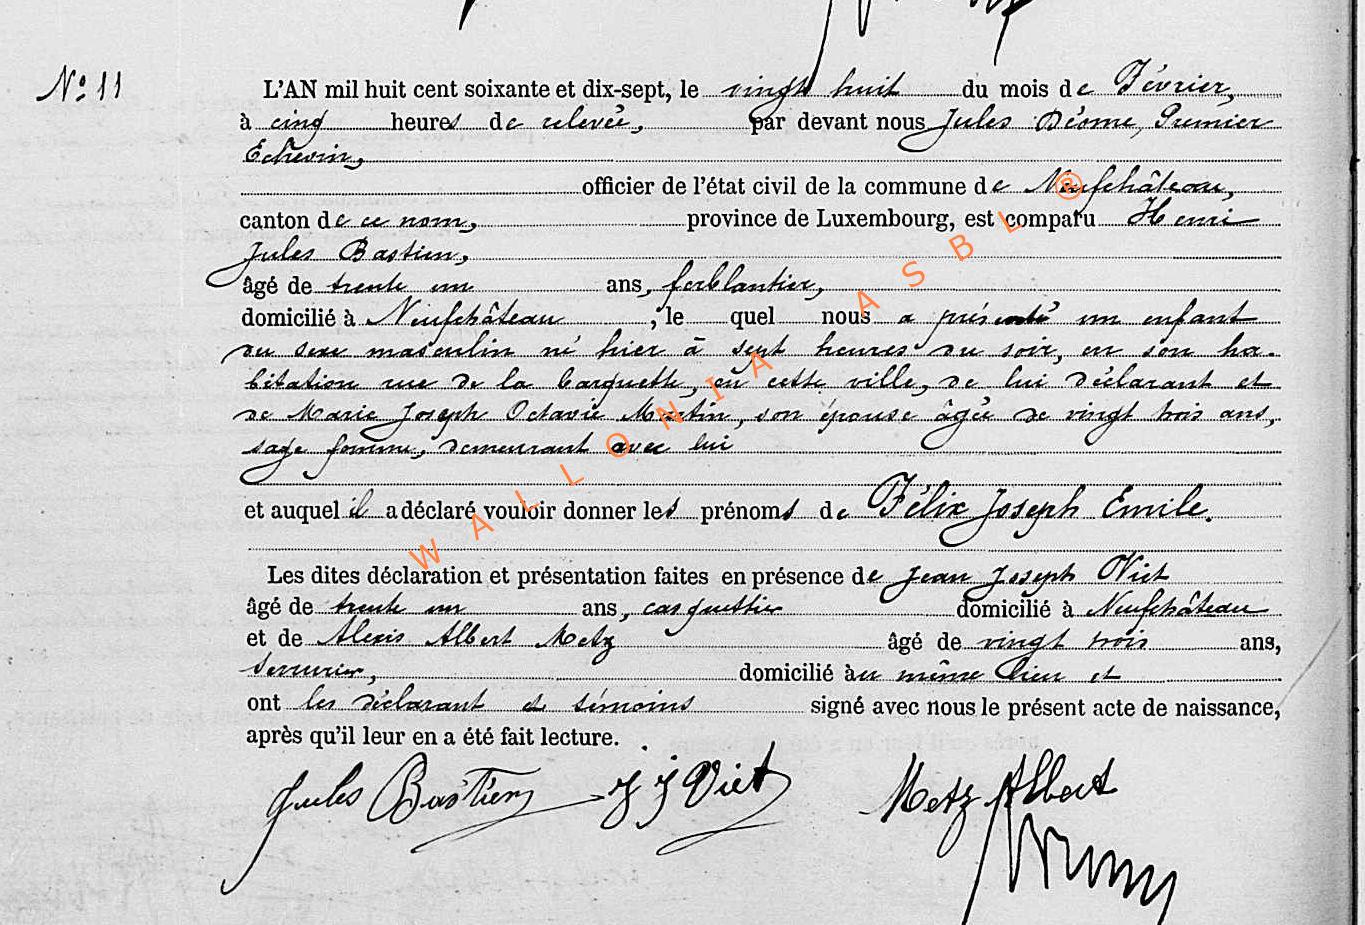 N° 11
L'AN mil huit cent soixante et dix-sept, le vingt huit du mois de Février,
à cinq heures de relevée, par devant nous Jules Déome, Premier
Echevin,
officier de l'état civil de la commune de Neufchâteau,
canton de ce nom, province de Luxembourg, est comparu Henri
Jules Bastien,
âgé de trente un ans, ferblantier,
domicilié à Neufchâteau, le quel nous a présenté un enfant
du sexe masculin né hier à sept heures du soir, en son ha-
bitation rue de la barquette, en cette ville, de lui déclarant et
de Marie Joseph Octavie Martin, son épouse âgée de vingt trois ans,
sage femme, demeurant avec lui
et auquel il a déclaré vouloir donner les prénoms de Félix Joseph Emile.
Les dites déclaration et présentation faites en présence de Jean Joseph Viet
âgé de trente un ans, casquettier domicilié à Neufchâteau
et de Alexis Albert Metz âgé de vingt trois ans,
serrurier, domicilié au même lieu et
ont les déclarant et témoins signé avec nous le présent acte de naissance,
après qu'il leur en a été fait lecture.
Jules Bastien J J Viet Metz Albert
WALLONIA ASBL ®